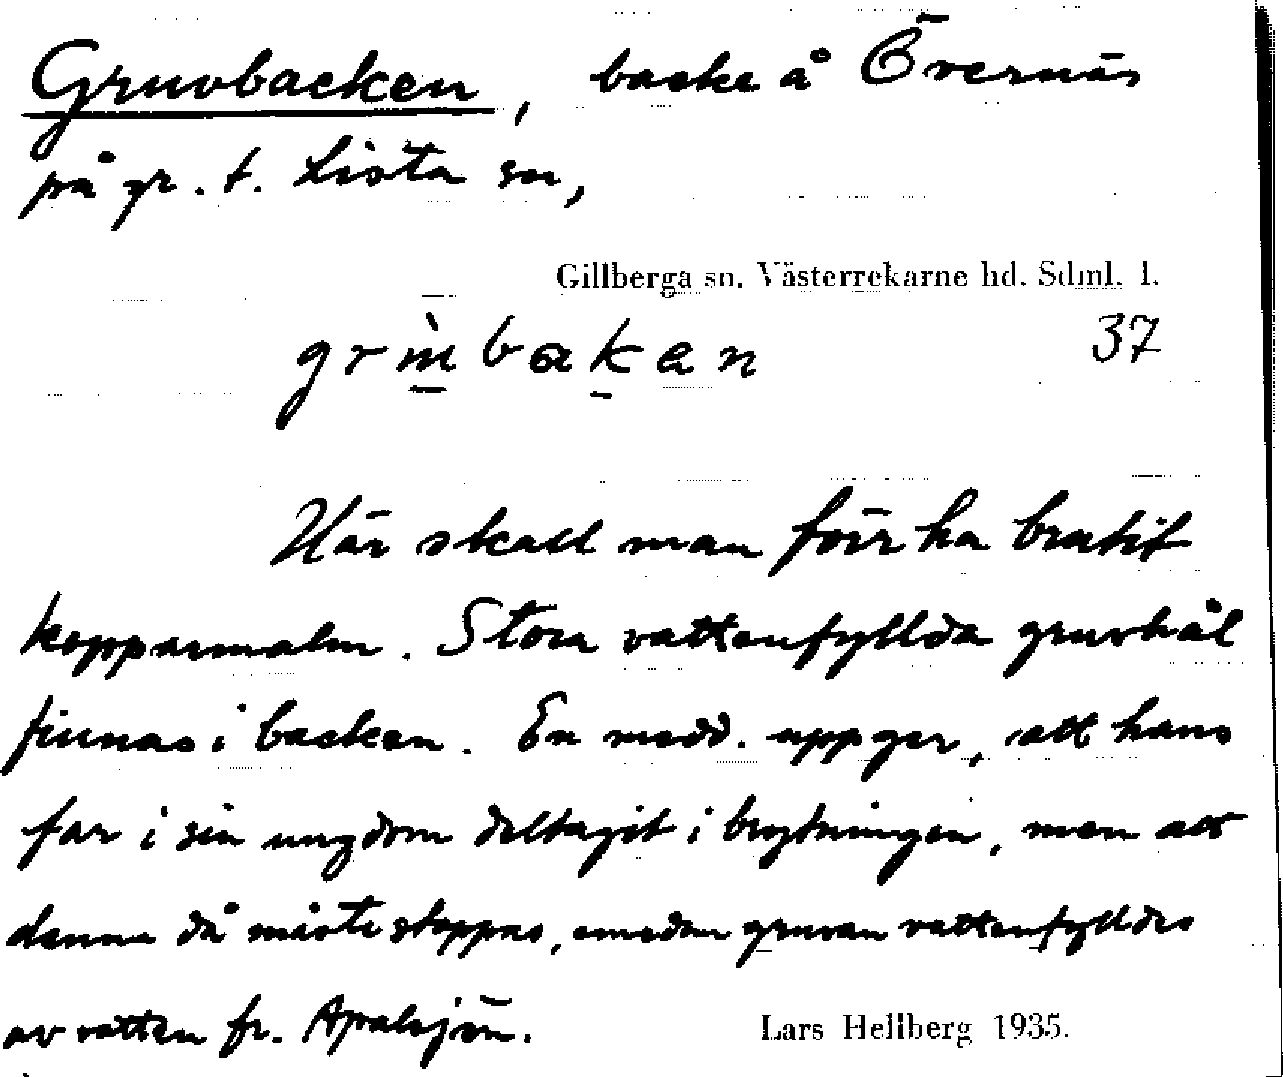 Gruvbacken, backe å Övernäs
på gr. t. Lista sn,
Gillberga sn. Västerrekarne hd. Sdml. l.
37
Här skall man förr ha brutit
kopparmalm. Stora vattenfyllda gruvhål
finnas i backen. En medd. uppger, att hans
far i sin ungdom deltagit i brytningen, men att
denna då måste stoppas, emedan gruvan vattenfylldes
av vatten fr. Apalsjön.
Lars Hellberg 1935.